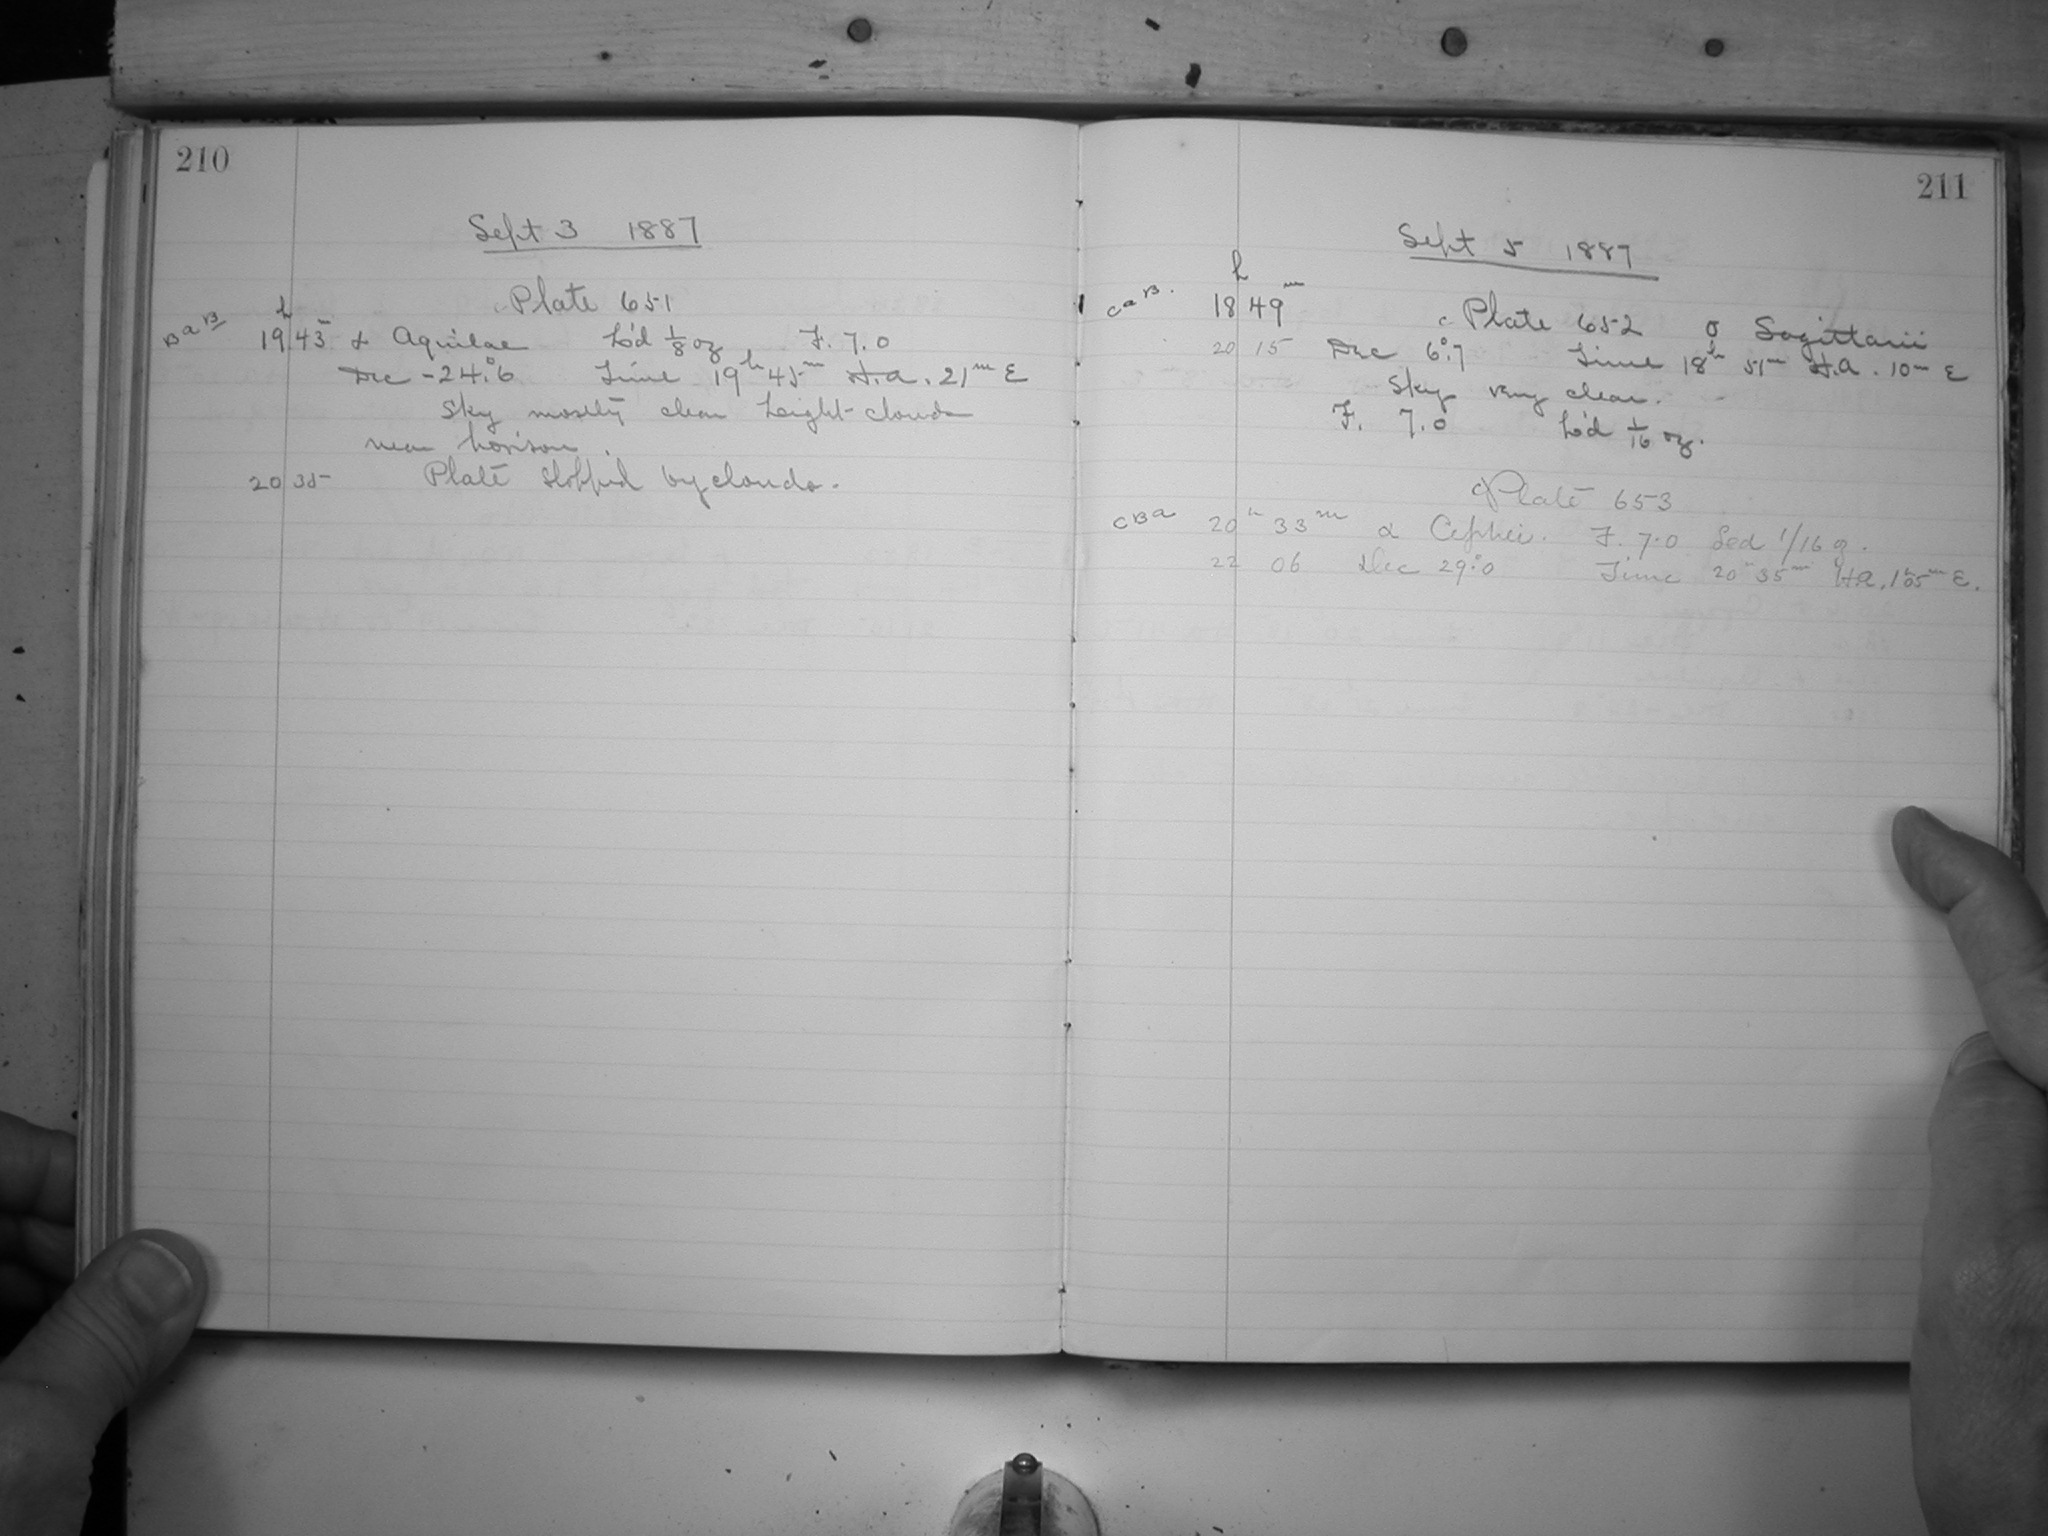 210
Sept 3 1887
Plate 651
BaB 19h 43m α Aquilae L'd 1/8 oz F. 7.0
Dec -24°.6 Time 19h 45m H.A. 21m E
Sky mostly clear Leight-clouds
near horison.
20 35 Plate stopped by clouds.
211
Sept 5 1887
CaB. 18h 49m c Plate 652 σ Sagittarii
20 15 Dec 6°.7 Time 18h 51m H.A. 10m E
Sky very clear.
F. 7.0 L'd 1/16 oz.
Plate 653
CBa 20h 33m α Cephei. F. 7.0 Led 1/16 oz.
22 06 Dec 29°.0 Time 20h 35m H.A. E.